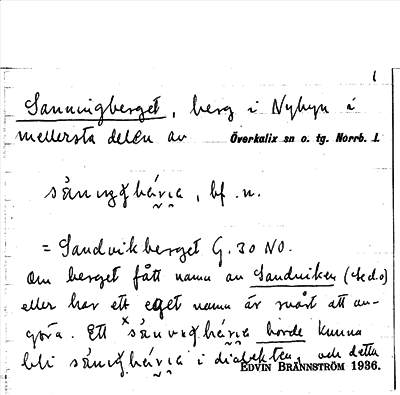 1
Sanningberget, berg i Nybyn i
mellersta delen av Överkalix sn o. tg. Norrb. l.
bf. n.
= Sandvikberget G. 30 NO.
Om berget fått namn av Sandviken (se d.o)
eller har ett eget namn är svårt att av-
göra. Ett borde kunna
bli i dialekten, och detta
EDVIN BRÄNNSTRÖM 1936.